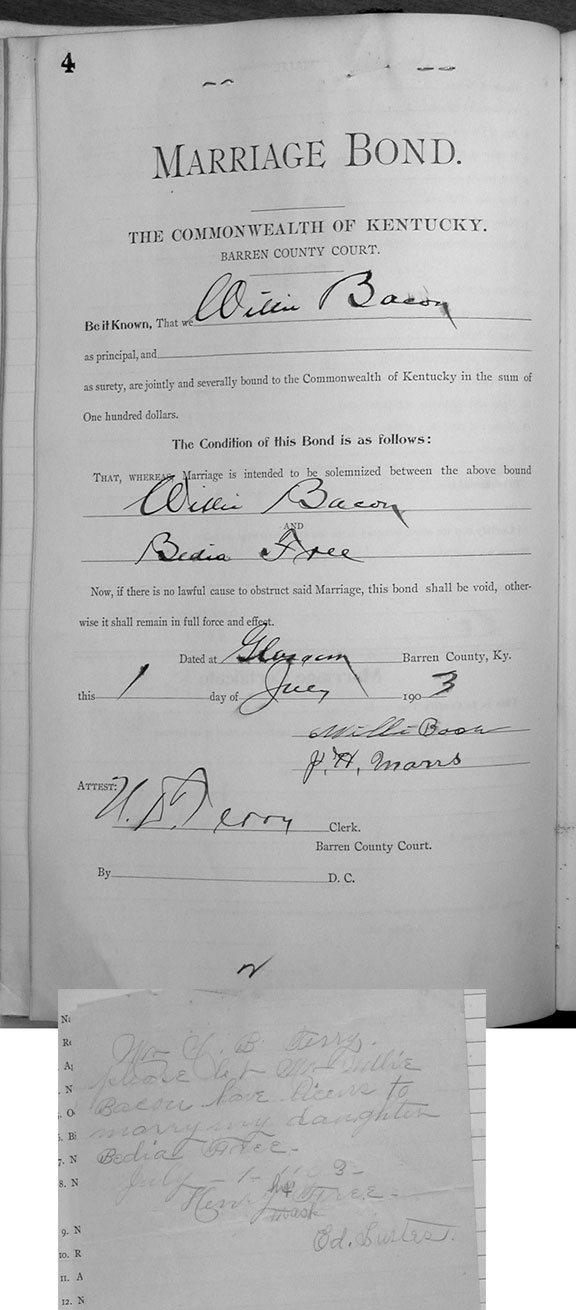 4
MARRIAGE BOND.
THE COMMONWEALTH OF KENTUCKY.
BARREN COUNTY COURT.
Be it Known, That we Willie Bacon
as principal, and
as surety, are jointly and severally bound to the Commonwealth of Kentucky in the sum of
One hundred dollars.
The Condition of this Bond is as follows:
THAT, WHEREAS, Marriage is intended to be solemnized between the above bound
Willie Bacon
AND
Bedia Free
Now, if there is no lawful cause to obstruct said Marriage, this bond shall be void, other-
wise it shall remain in full force and effect.
Dated at Glasgow Barren County, Ky.
this 1 day of July 1903
Willi
J. H. Marrs
ATTEST:
Terry Clerk.
Barren County Court.
By D. C.
Mr B. Terry.
please let Mr Willie
Bacon have licens to
marry my daughter
Bedia Free-
July -1- 3-
his
Henry Free-
mark
Ed.
8. N
9. N
10. R
11. A
12. N